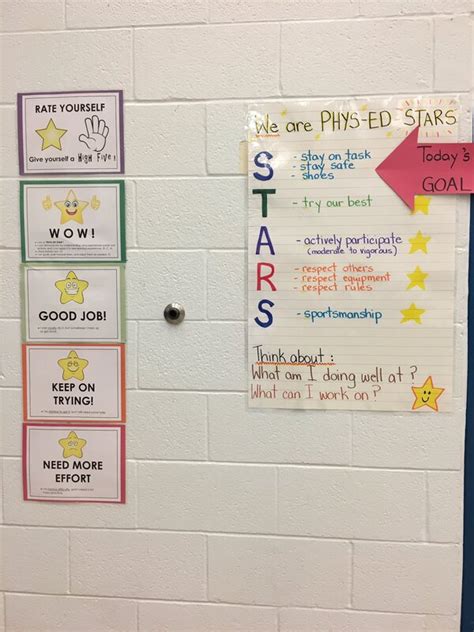 RATE YOURSELF
Give yourself a High Five!
WOW!
GOOD JOB!
KEEP ON
TRYING!
NEED MORE
EFFORT
We are PHYS-ED STARS
S - stay on task
- stay safe
- shoes
T - try our best
A - actively participate
(moderate to vigorous)
R - respect others
- respect equipment
- respect rules
S - sportsmanship
Think about :
What am I doing well at ?
What can I work on ?
Today's
GOAL